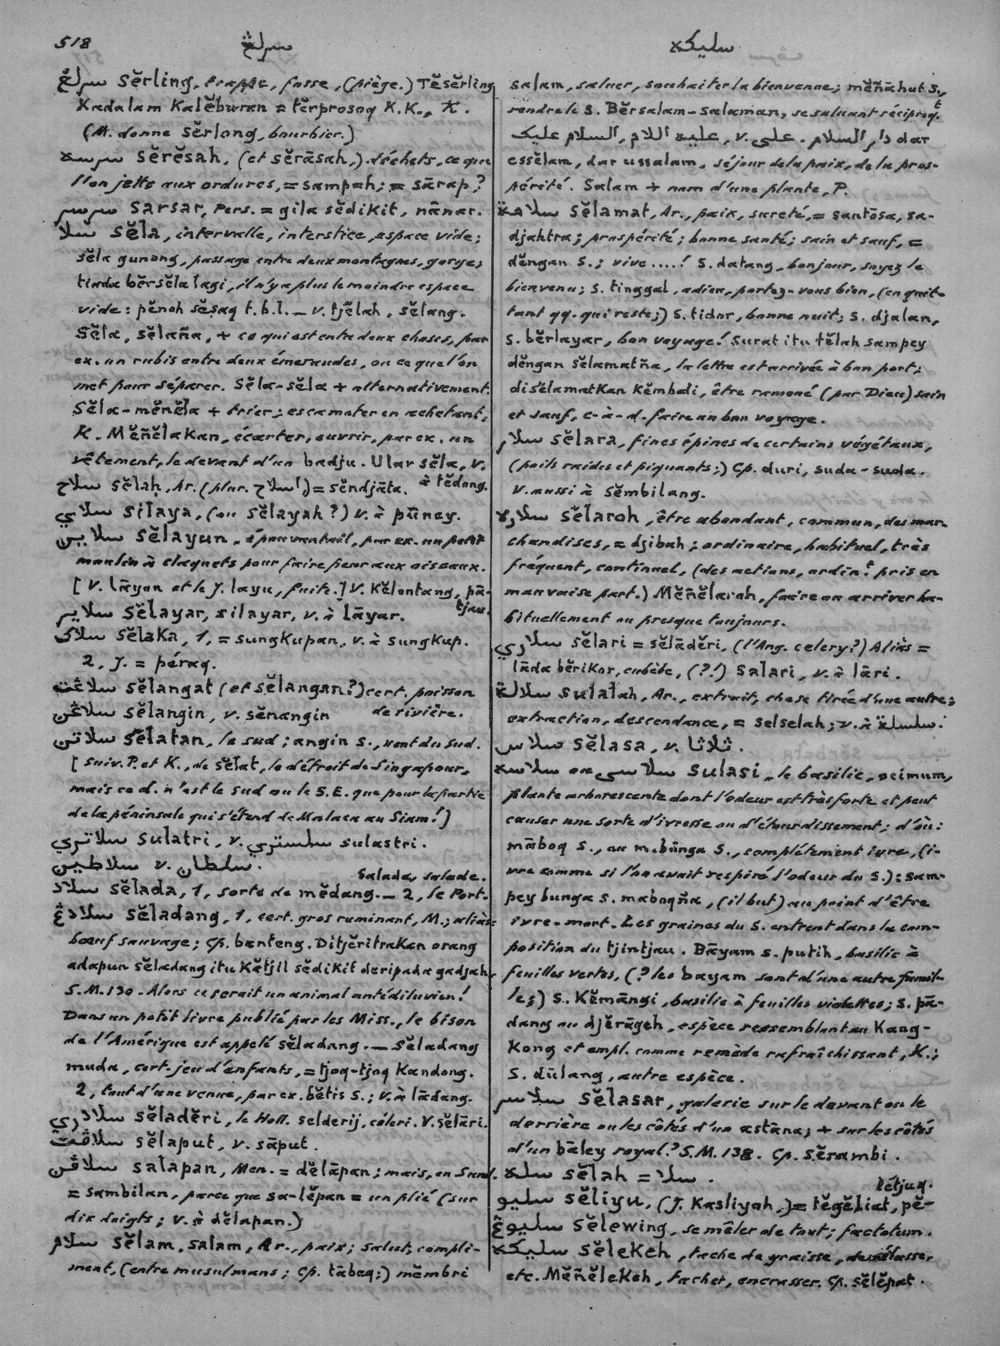 518 سرلڠ سليكه
سرلڠ sĕrling, trappe, fosse, (piège.) Tĕsĕrling
Kadalam Kalĕburan = tĕrprosoq K.K., K.
(M. donne sĕrlong, bourbier.)
سرسه sĕrĕsah, (et sĕrāsah,) déchets, ce que
l'on jette aux ordures, = sampah; = sārap?
سرسر sarsar, Pers. = gila sĕdikit, nānar.
سلا sĕla, intervalle, interstice, espace vide;
sĕla gunong, passage entre deux montagnes, gorge;
tiada bĕrsĕla lagi, il n'y a plus le moindre espace
vide: pĕnoh sĕsaq t.b.l. _ v. tjĕlah, sĕlang.
Sĕla, sĕlaña, + ce qui est entre deux choses, par
ex. un rubis entre deux émeraudes, ou ce que l'on
met pour séparer. Sĕla-sĕla + alternativement.
Sĕla-mĕnĕla + trier; escamoter en achetant,
K. Mĕñĕlakan, écarter, ouvrir, par ex. un
vêtement, le devant d'un badju. Ular sĕla, v.
à tĕdong.
سلاح sĕlaḥ, Ar. (plur. اسلاح,) = sĕndjāta.
سلاي silaya, (ou sĕlayah?) v. à pūney.
سلاين sĕlayun, épouvantail, par ex. un petit
moulin à claquets pour faire peur aux oiseaux.
[v. lāyon et le J. layu, fuite.] v. Kĕlontang, pā-
tjau.
سلاير sĕlayar, silayar, v. à lāyar.
سلاك sĕlaka, 1, = sungkupan, v. à sungkup.
2, J. = péraq.
سلاڠت sĕlangat (et sĕlangan?) cert. poisson
de rivière.
سلاڠن sĕlangin, v. sĕnangin
سلاتن sĕlatan, le sud; angin s., vent du sud.
[suiv. P. et K., de sĕlat, le détroit de Singapour,
mais ce d. n'est le sud ou le S.E. que pour la partie
de la péninsule qui s'étend de Malaca au Siam!]
سلاتري sulatri, v. سلستري sulastri.
سلاطين v. سلطان.
Salada, salade.
سلاد sĕlada, 1, sorte de mĕdang. _ 2, le Port.
سلادڠ sĕladang, 1, cert. gros ruminant, M.; aliàs:
bœuf sauvage; cp. banteng. Ditjĕritrakan orang
adapun sĕladang itu kĕtjil sĕdikit deripada gadjah,
S.M. 130. Alors ce serait un animal antédiluvien!
Dans un petit livre publié par les Miss., le bison
de l'Amérique est appelé sĕladang. _ Sĕladang
muda, cert. jeu d'enfants, = tjoq-tjoq kandong.
2, tout d'une venue, par ex. bĕtis s.; v. à lādang.
سلادري sĕladĕri, le Holl. selderij, céleri. V. sĕlāri.
سلاڤت sĕlaput, v. sāput.
سلاڤن salapan, Men. = dĕlāpan; mais, en Sund.
= sambilan, parce que sa-lĕpan = un plié (sur
dix doigts; v. à dĕlapan.)
سلام sĕlam, salam, Ar., paix; salut, compli-
ment, (entre musulmans; cp. tābeq;) mĕmbri
salam, saluer, souhaiter la bienvenue; mĕñāhut s.,
rendre le s. Bĕrsalam-salaman, se saluant réciproqt.
دار السلام. على v. ,عليه اللام ,السلام عليك dar
essĕlam, dar ussalam, séjour de la paix, de la pros-
périté. Salam + nam d'une plante, P.
سلامة sĕlamat, Ar., paix, sureté, = santōsa, sa-
djahtra; prospérité; bonne santé; sain et sauf, =
dĕngan s.; vive ....! S. datang, bonjour, soyez le
bienvenu; s. tinggal, adieu, portez-vous bien, (en quit-
tant qq. qui reste;) s. tidor, bonne nuit; s. djalan,
s. bĕrlayar, bon voyage! Surat itu tĕlah sampey
dĕngan sĕlamatña, la lettre est arrivée à bon port;
disĕlamatkan kĕmbali, être ramené (par Dieu) sain
et sauf, c-à-d. faire un bon voyage.
سلار sĕlara, fines épines de certains végétaux,
(poils raides et piquants;) cp. duri, suda-suda.
V. aussi à sĕmbilang.
سلاره sĕlaroh, être abondant, commun, des mar
chandises, = djibah; ordinaire, habituel, très
fréquent, continuel, (des actions, ordin.t pris en
mauvaise part.) Mĕñĕlarah, faire ou arriver ha-
bituellement ou presque toujours.
سلاري sĕlari = sĕlādĕri, (l'Ang. celery?) Aliàs =
lāda bĕrikor, cubèbe, (?!) Salari, v. à lāri.
سلالة sulalah, Ar., extrait, chose tirée d'une autre;
extraction, descendance, = selselah; v. à سلسلة.
سلاس sĕlasa, v. ثلاثا.
سلاسه ou سلاسي sulasi, le basilic, ocimum,
plante arborescente dont l'odeur est très forte et peut
causer une sorte d'ivresse ou d'étourdissement; d'où:
māboq s., ou m. būnga s., complètement ivre, (i-
vre comme si l'on avait respiré l'odeur du s.): sam-
pey bunga s. maboqña, (il but) au point d'être
ivre-mort. Les graines du s. entrent dans la com-
position du tjintjau. Bāyam s. putih, basilic à
feuilles vertes, (? les bayam sont d'une autre famil-
le;) s. Kĕmāngi, basilic à feuilles violettes; s. pā-
dang ou djĕrāgeh, espèce ressemblant au Kang-
Kong et empl. comme remède rafraîchissant, K.;
s. dūlang, autre espèce.
سلاسر sĕlasar, galerie sur le devant ou le
derrière ou les côtés d'un astāna; + sur les côtés
d'un bāley royal? S.M. 138. Cp. sĕrambi.
سله sĕlah = سلا.
létjuq.
سليو sĕliyu, (J. Kasliyah,) = tĕgĕliat, pĕ-
سليوڠ sĕlewing, se mêler de tout; factotum.
سليكه sĕlekeh, tache de graisse,
etc. Mĕñĕlekeh, tacher, encrasser. Cp. sĕlĕpat.